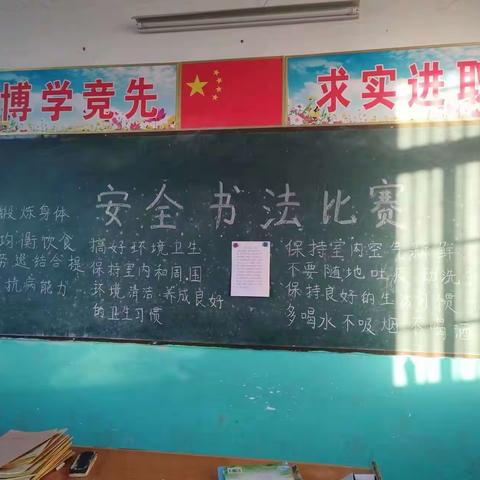 博学竞先
求实进取
安全书法比赛
锻炼身体
均衡饮食
劳逸结合提
抗病能力
搞好环境卫生
保持室内和周围
环境清洁 养成良好
的卫生习惯
保持室内空气新鲜
不要随地吐痰 勤洗
保持良好的生活习惯
多喝水不吸烟 不喝酒